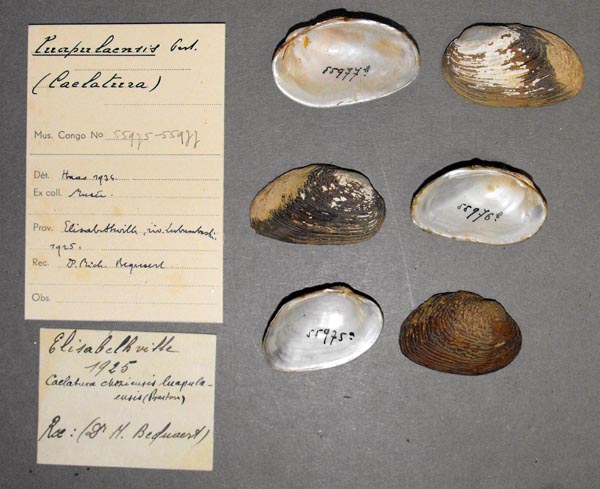 Luapulaensis Pert.
(Caelatura)
Mus. Congo No 55975-55977
Dét. Haas 1936.
Ex coll. Musée.
Prov. Elisabethville, riv. Lubumbashi.
1925.
Rec. Dr Bequaert
Obs.
Elisabethville
1925
Caelatura luapula-
ensis (Preston)
Rec: (Dr M. Bequaert)
55977
55976
55975